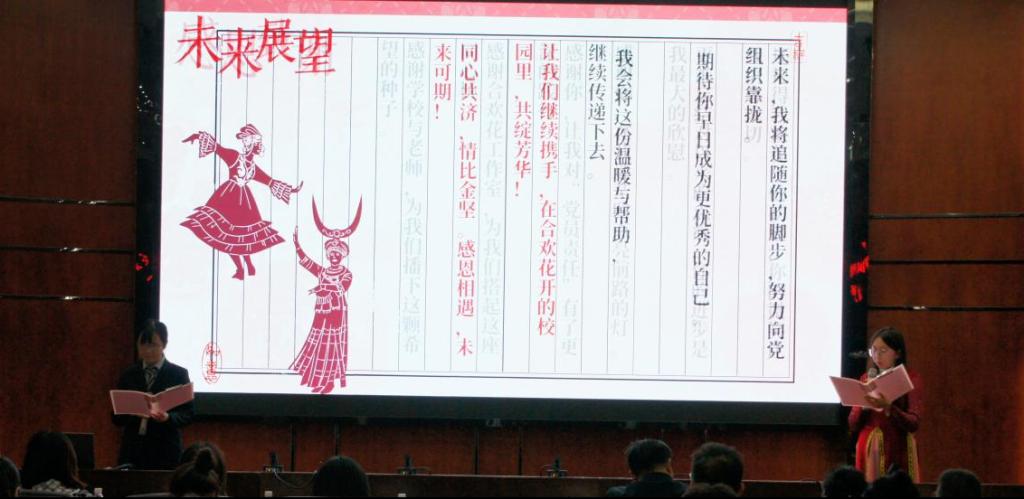 未来展望
未来，我将追随你的脚步，努力向党
组织靠拢。
期待你早日成为更优秀的自己
我最大的欣慰
我会将这份温暖与帮助，
继续传递下去。
感谢你，让我对“党员责任”有了更
让我们继续携手，在合欢花开的校
园里，共绽芳华！
感谢合欢花工作室，为我们搭起这座
同心共济，情比金坚。感恩相遇，未
来可期！
感谢学校与老师，为我们播下这颗希
望的种子